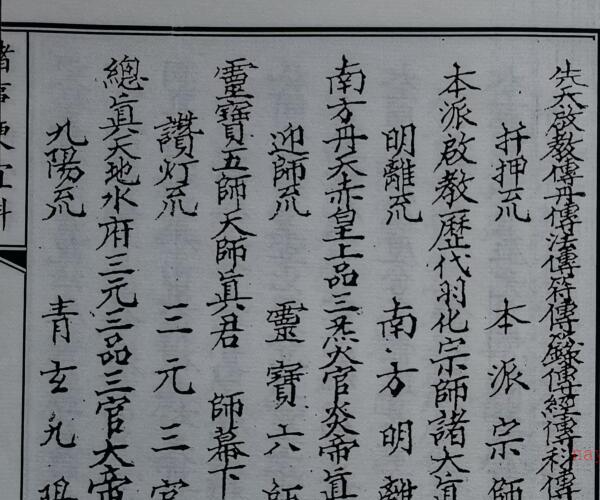 先天啟教傳丹傳法傳符傳籙傳經傳科傳
幷押㐬 本派宗師
本派啟教歷代羽化宗師諸大眞
明離㐬 南方明離
南方丹天赤皇上品三炁火官炎帝眞
迎師㐬 靈寶六師
靈寶五師天師眞君 師幕下
讚灯㐬 三元三官
總眞天地水府三元三品三官大帝
九陽㐬 青玄九陽